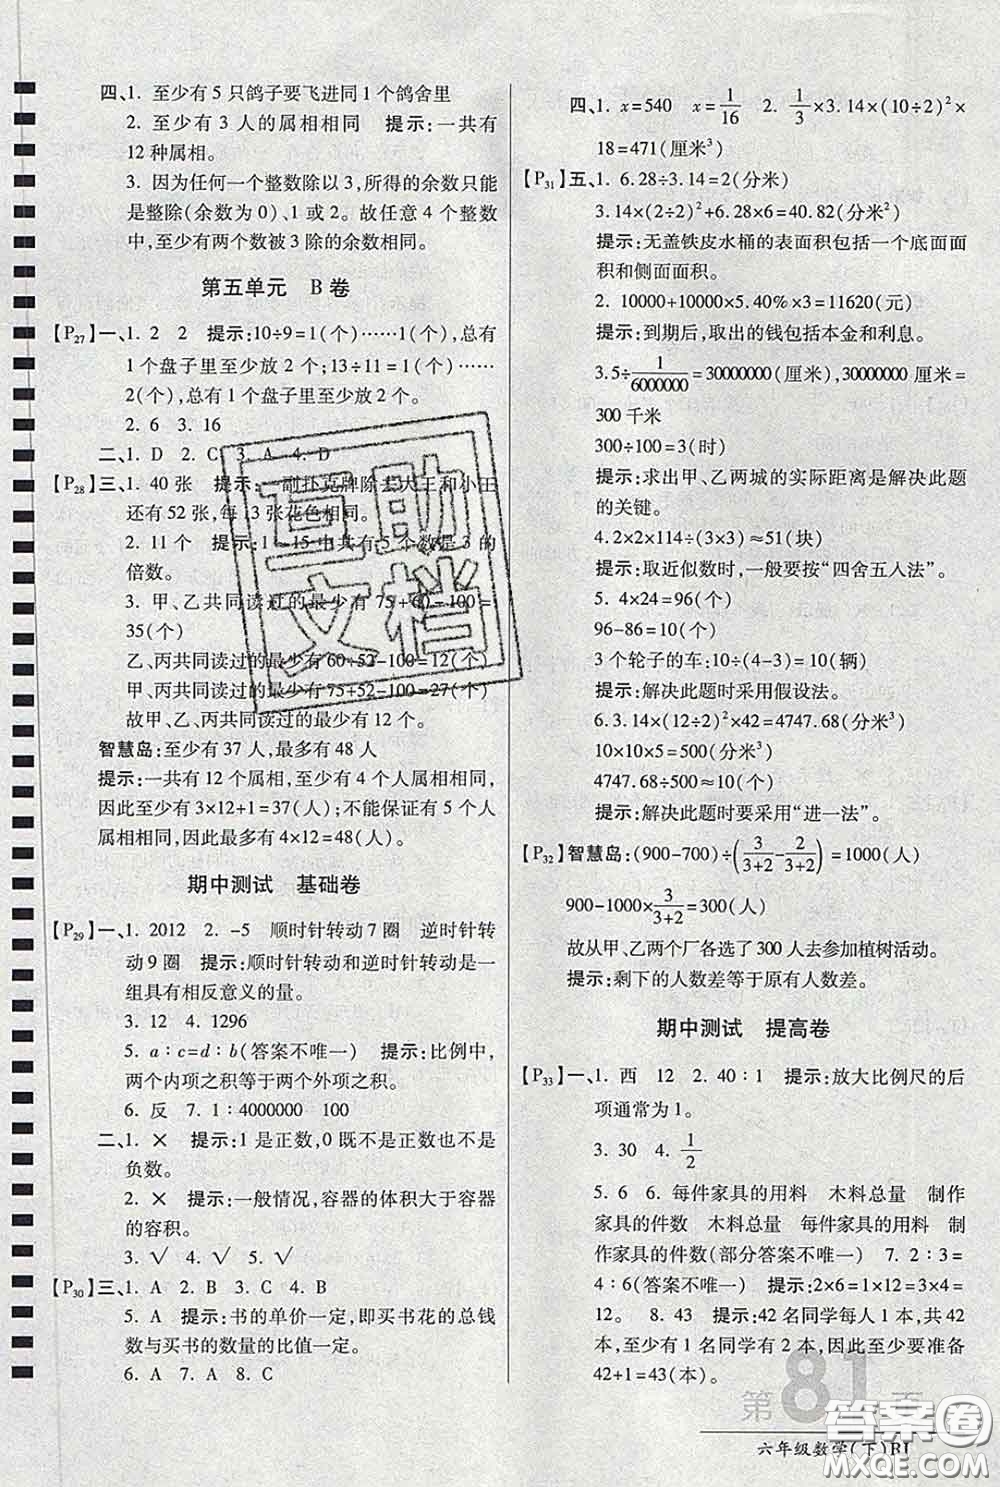 四、1. 至少有 5 只鸽子要飞进同 1 个鸽舍里
2. 至少有 3 人的属相相同　提示:一共有
12 种属相。
3. 因为任何一个整数除以 3,所得的余数只能
是整除(余数为 0)、1 或 2。故任意 4 个整数
中,至少有两个数被 3 除的余数相同。
第五单元　B 卷
【P27】一、1. 2　2　提示:10÷9=1(个)……1(个),总有
1 个盘子里至少放 2 个;13÷11=1(个)……
2(个),总有 1 个盘子里至少放 2 个。
2. 6　3. 16
二、1. D　2. C　3. A　4. D
【P28】三、1. 40 张　提示:一副扑克牌除去大王和小王
还有 52 张,每 13 张花色相同。
2. 11 个　提示:1~15 中共有 5 个数是 3 的
倍数。
3. 甲、乙共同读过的最少有 75+60-100=
35(个)
乙、丙共同读过的最少有 60+52-100=12(个)
甲、丙共同读过的最少有 75+52-100=27(个)
故甲、乙、丙共同读过的最少有 12 个。
智慧岛:至少有 37 人,最多有 48 人
提示:一共有 12 个属相,至少有 4 个人属相相同,
因此至少有 3×12+1=37(人);不能保证有 5 个人
属相相同,因此最多有 4×12=48(人)。
期中测试　基础卷
【P29】一、1. 2012　2. -5　顺时针转动 7 圈　逆时针转
动 9 圈　提示:顺时针转动和逆时针转动是一
组具有相反意义的量。
3. 12　4. 1296
5. a∶c=d∶b(答案不唯一)　提示:比例中,
两个内项之积等于两个外项之积。
6. 反　7. 1∶4000000　100
二、1. ×　提示:1 是正数,0 既不是正数也不是
负数。
2. ×　提示:一般情况,容器的体积大于容器
的容积。
3. √　4. √　5. √
【P30】三、1. A　2. B　3. C　4. B
5. A　提示:书的单价一定,即买书花的总钱
数与买书的数量的比值一定。
6. A　7. A　8. C
四、1. x=540　x=1/16　2. 1/3×3.14×(10÷2)²×
18=471(厘米³)
【P31】五、1. 6.28÷3.14=2(分米)
3.14×(2÷2)²+6.28×6=40.82(分米²)
提示:无盖铁皮水桶的表面积包括一个底面面
积和侧面面积。
2. 10000+10000×5.40%×3=11620(元)
提示:到期后,取出的钱包括本金和利息。
3. 5÷1/6000000=30000000(厘米),30000000厘米=
300 千米
300÷100=3(时)
提示:求出甲、乙两城的实际距离是解决此题
的关键。
4. 2×2×114÷(3×3)≈51(块)
提示:取近似数时,一般要按“四舍五入法”。
5. 4×24=96(个)
96-86=10(个)
3 个轮子的车:10÷(4-3)=10(辆)
提示:解决此题时采用假设法。
6. 3.14×(12÷2)²×42=4747.68(分米³)
10×10×5=500(分米³)
4747.68÷500≈10(个)
提示:解决此题时要采用“进一法”。
【P32】智慧岛:(900-700)÷(3/(3+2)-2/(3+2))=1000(人)
900-1000×3/(3+2)=300(人)
故从甲、乙两个厂各选了 300 人去参加植树活动。
提示:剩下的人数差等于原有人数差。
期中测试　提高卷
【P33】一、1. 西　12　2. 40∶1　提示:放大比例尺的后
项通常为 1。
3. 30　4. 1/2
5. 6　6. 每件家具的用料　木料总量　制作
家具的件数　木料总量　每件家具的用料　制
作家具的件数(部分答案不唯一)　7. 2∶3=
4∶6(答案不唯一)　提示:2×6=1×12=3×4=
12。　8. 43　提示:42 名同学每人 1 本,共 42
本,至少有 1 名同学有 2 本,因此至少要准备
42+1=43(本)
第 81 页
六年级数学(下)RJ
互助
文档
答案圈
MXQE.COM